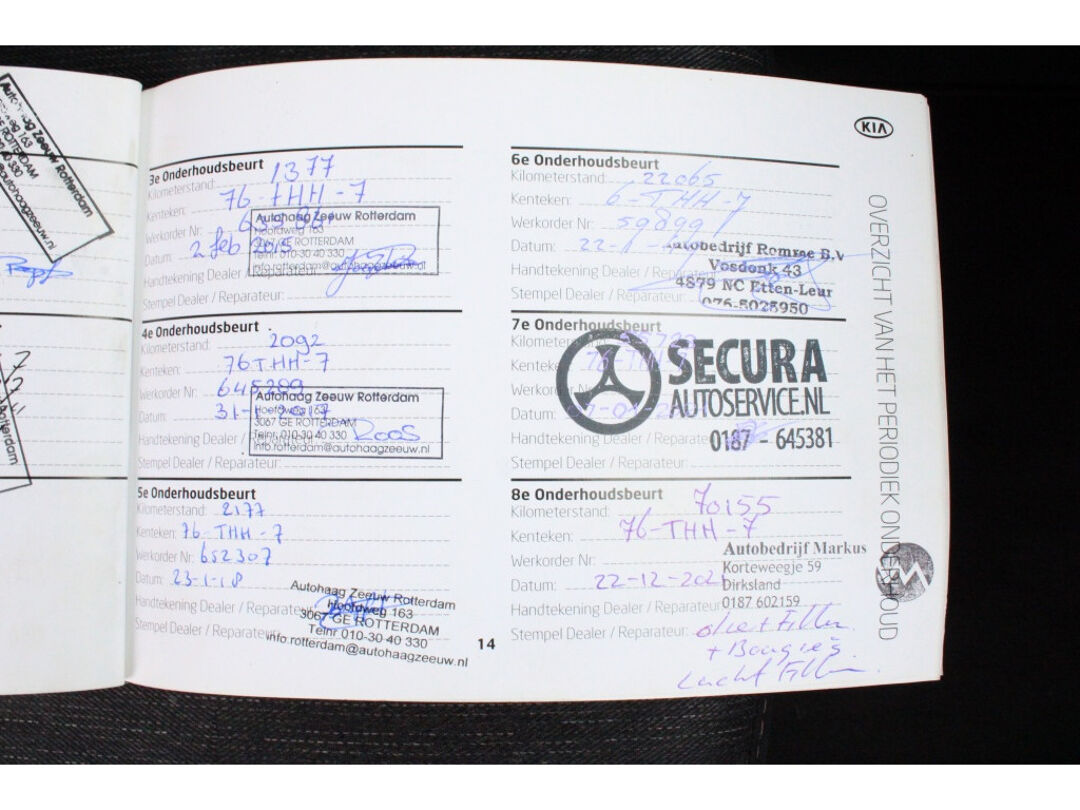 Autohaag Zeeuw Rotterdam
3e Onderhoudsbeurt
Kilometerstand: 1377
Kenteken: 76-THH-7
Werkorder Nr:
Datum: 2 feb
Handtekening Dealer / Reparateur:
Stempel Dealer / Reparateur:
Autohaag Zeeuw Rotterdam
Hoofdweg 163
3067 GE ROTTERDAM
Telnr. 010-30 40 330
info.rotterdam@autohaagzeeuw.nl
4e Onderhoudsbeurt
Kilometerstand: 2092
Kenteken: 76-THH-7
Werkorder Nr: 645299
Datum: 31-1-2017
Handtekening Dealer / Reparateur:
Stempel Dealer / Reparateur:
Autohaag Zeeuw Rotterdam
Hoofdweg 163
3067 GE ROTTERDAM
Telnr. 010-30 40 330
info.rotterdam@autohaagzeeuw.nl
Roos
5e Onderhoudsbeurt
Kilometerstand: 2177
Kenteken: 76-THH-7
Werkorder Nr: 652307
Datum: 23-1-18
Handtekening Dealer / Reparateur:
Stempel Dealer / Reparateur:
Autohaag Zeeuw Rotterdam
Hoofdweg 163
3067 GE ROTTERDAM
Telnr 010-30 40 330
info.rotterdam@autohaagzeeuw.nl
14
KIA
OVERZICHT VAN HET PERIODIEK ONDERHOUD
6e Onderhoudsbeurt
Kilometerstand: 22065
Kenteken: 6-THH-7
Werkorder Nr: 59899
Datum: 22-1-
Handtekening Dealer / Reparateur:
Stempel Dealer / Reparateur:
Autobedrijf Romme B.V
Vosdonk 43
4879 NC Etten-Leur
076-5025950
7e Onderhoudsbeurt
Kilometerstand:
Kenteken: 76-THH-7
Werkorder Nr:
Datum:
Handtekening Dealer / Reparateur:
Stempel Dealer / Reparateur:
SECURA
AUTOSERVICE.NL
0187 - 645381
8e Onderhoudsbeurt
Kilometerstand: 70155
Kenteken: 76-THH-7
Werkorder Nr:
Datum: 22-12-2021
Handtekening Dealer / Reparateur:
Stempel Dealer / Reparateur:
Autobedrijf Markus
Korteweegje 59
Dirksland
0187 602159
olie + Filter
+ Bougie's
Lucht Filter